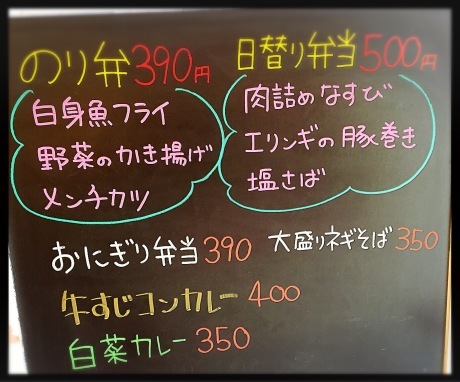 のり弁390円
白身魚フライ
野菜のかき揚げ
メンチカツ
日替り弁当500円
肉詰めなすび
エリンギの豚巻き
塩さば
おにぎり弁当390
大盛りネギそば350
牛すじコンカレー400
白菜カレー350